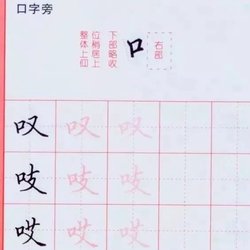 口字旁
下部略收
位稍居上
整体上仰
口
右部
叹 叹 叹
吱 吱 吱
哎 哎 哎